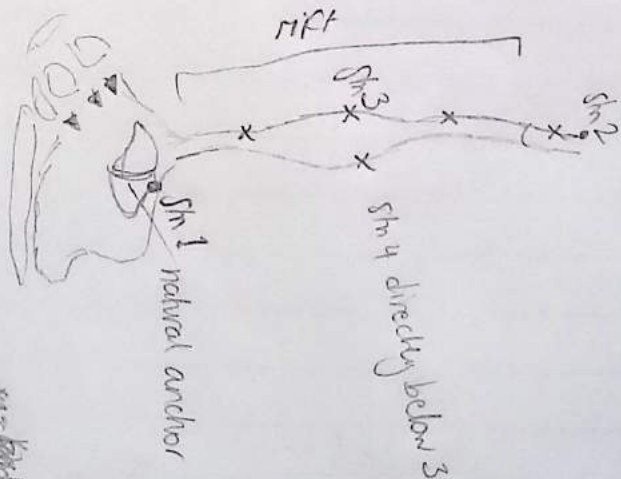 rift
stn 3
stn 2
stn 1
natural anchor
stn 4 directly below 3